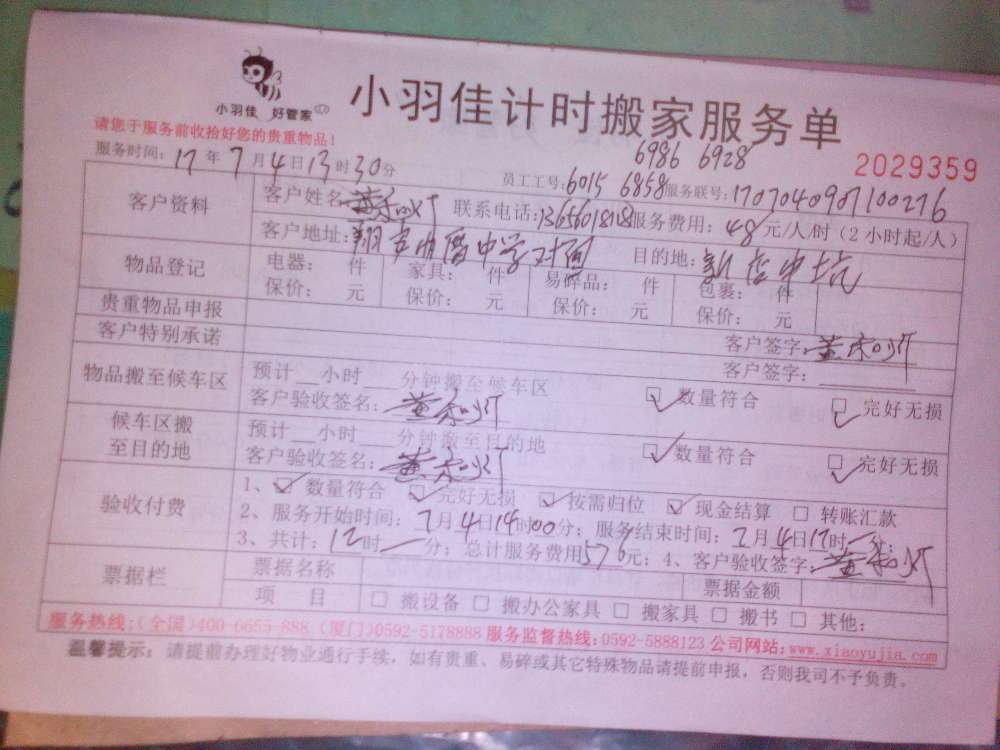 小羽佳 好管家
小羽佳计时搬家服务单
请您于服务前收拾好您的贵重物品!
6986 6928
2029359
服务时间: 17年7月4日13时30分
员工工号: 6015 6858 服务联号: 1707040907100276
客户资料
客户姓名: 联系电话: 服务费用: 48元/人/时(2小时起/人)
客户地址: 中学对面 目的地:
物品登记
电器: 件 家具: 件 易碎品: 件 包裹: 件
保价: 元 保价: 元 保价: 元 保价: 元
贵重物品申报
客户签字:
客户特别承诺
客户签字:
物品搬至候车区
预计__小时__分钟搬至候车区
客户验收签名: ☑ 数量符合 ☑ 完好无损
候车区搬至目的地
预计__小时__分钟搬至目的地
客户验收签名: ☑ 数量符合 ☑ 完好无损
验收付费
1、☑ 数量符合 ☑ 完好无损 ☑ 按需归位 ☑ 现金结算 □ 转账汇款
2、服务开始时间: 7月4日14时00分; 服务结束时间: 7月4日17时
3、共计: 12时一分; 总计服务费用576元; 4、客户验收签字:
票据栏
票据名称 票据金额
项 目 □ 搬设备 □ 搬办公家具 □ 搬家具 □ 搬书 □ 其他:
服务热线:(全国)400-6655-888 (厦门)0592-5178888 服务监督热线:0592-5888123 公司网站:www.xiaoyujia.com
温馨提示: 请提前办理好物业通行手续,如有贵重、易碎或其它特殊物品请提前申报,否则我司不予负责。